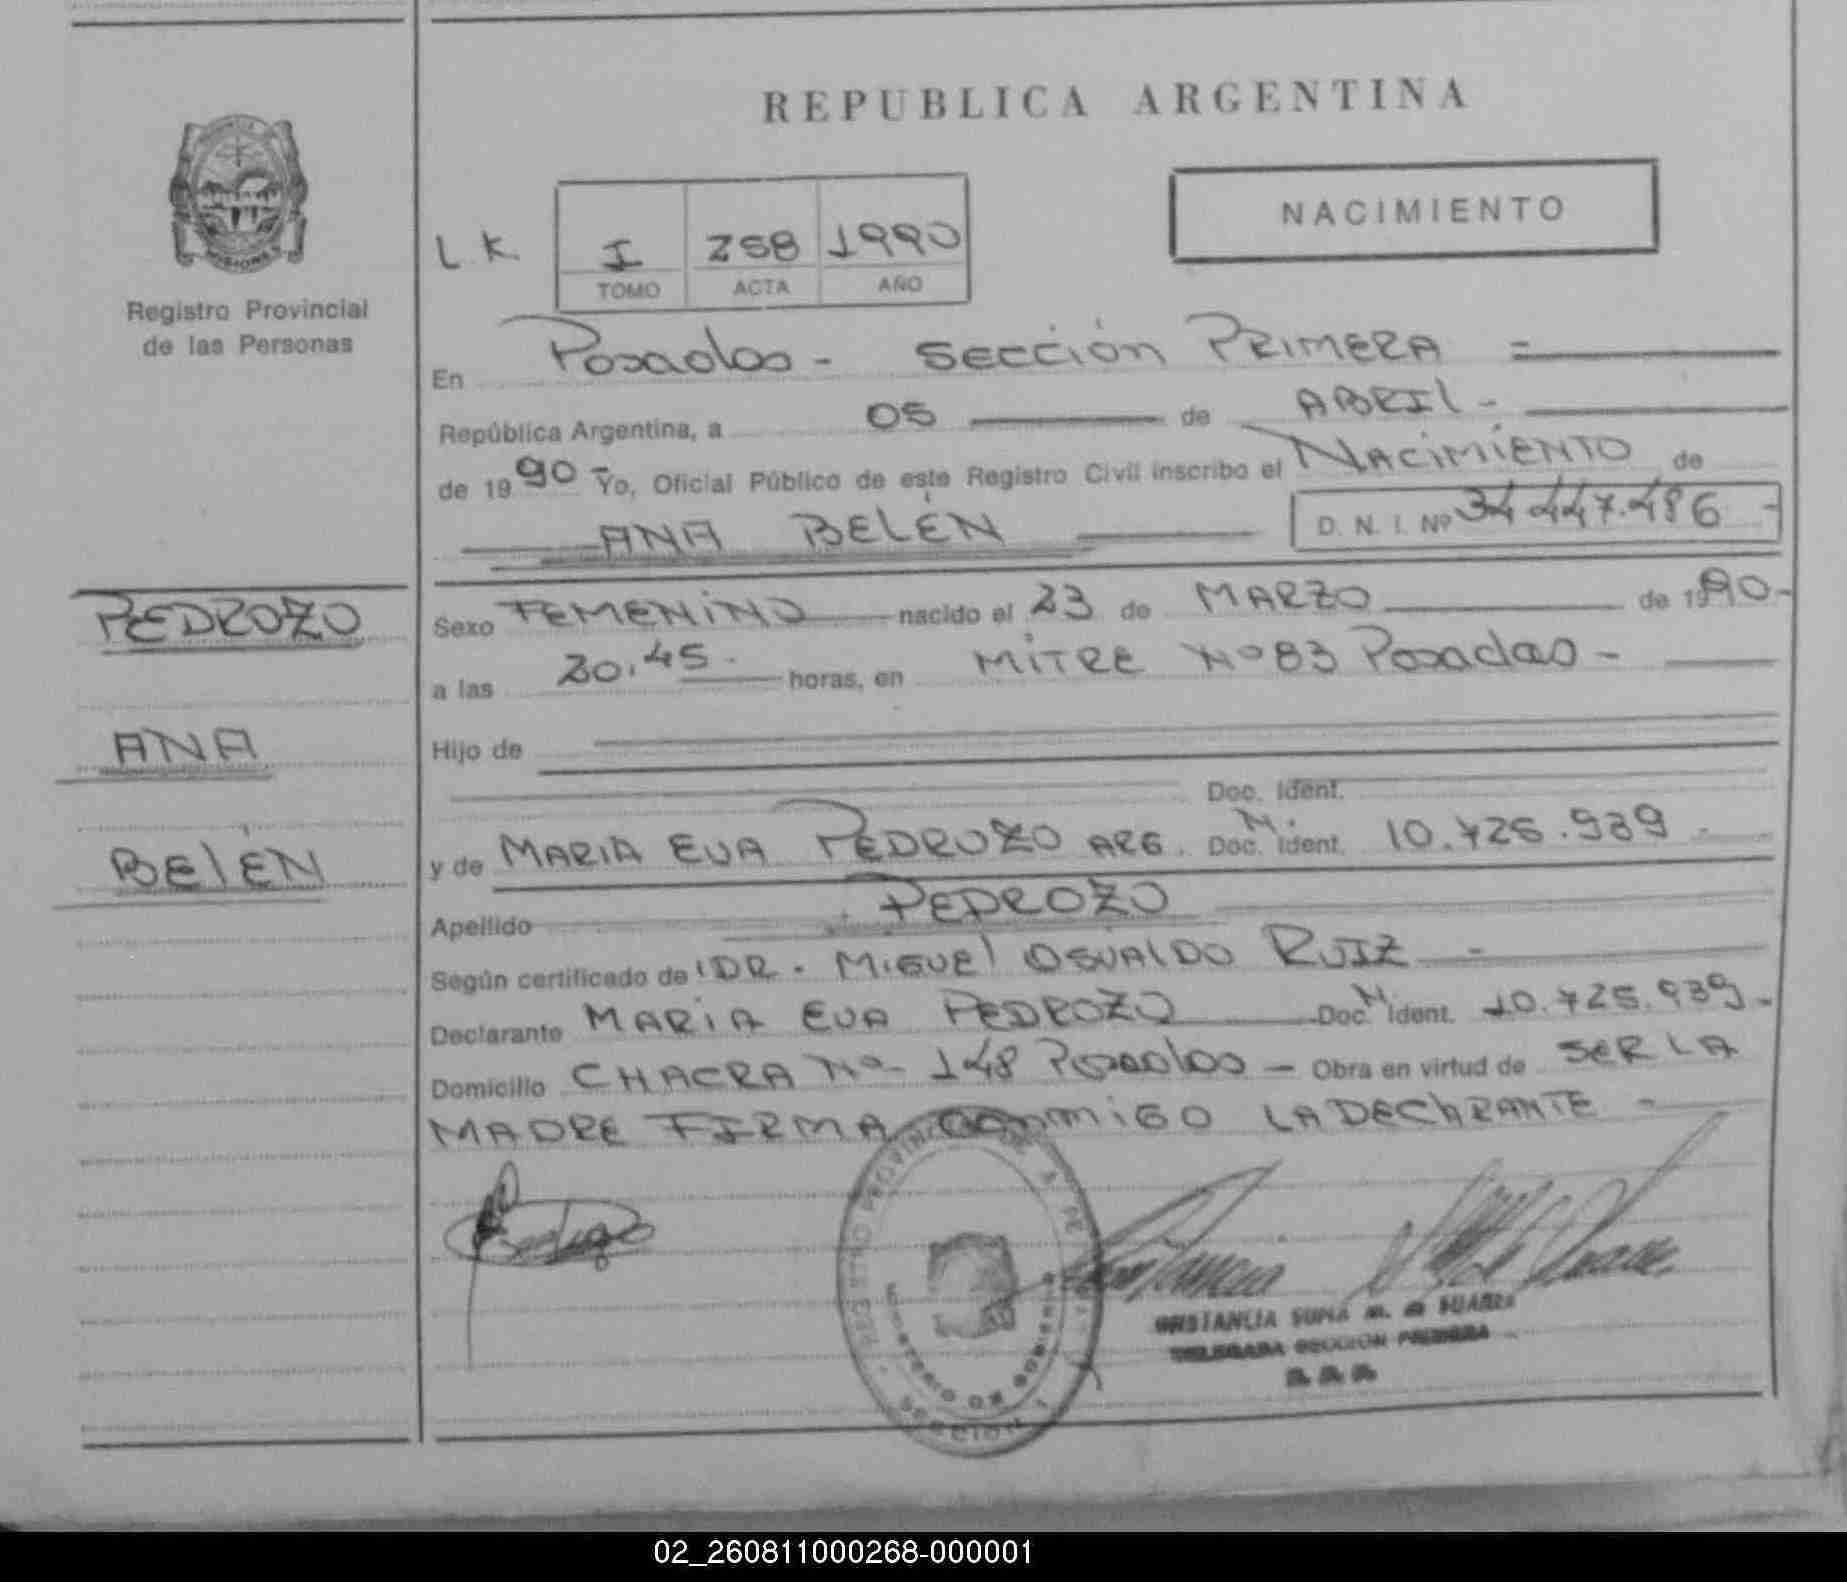 REPUBLICA ARGENTINA
NACIMIENTO
L.K. I 258 1990
TOMO ACTA AÑO
Registro Provincial
de las Personas
En Posadas - Sección PRIMERA =
República Argentina, a 05 de ABRIL -
de 1990 - Yo, Oficial Público de este Registro Civil inscribo el NACIMIENTO de
ANA BELÉN D. N. I. Nº 34.447.486 -
PEDROZO
ANA
BELÉN
Sexo FEMENINO nacido el 23 de MARZO de 1990 -
a las 20.45 - horas, en MITRE Nº 83 Posadas -
Hijo de
Doc. Ident.
y de MARIA EVA PEDROZO ARG. Doc. N. Ident. 10.725.939 -
Apellido PEDROZO
Según certificado de DR. MIGUEL OSVALDO RUIZ -
Declarante MARIA EVA PEDROZO Doc. N. Ident. 10.725.939 -
Domicilio CHACRA Nº - 148 Posadas - Obra en virtud de SER LA
MADRE FIRMA CONMIGO LA DECLARANTE -
REGISTRO PROVINCIAL DE LAS PE
MINISTERIO DE GOBIERNO
SECCION 1
DELEGADA SECCION PRIMERA
02_260811000268-000001